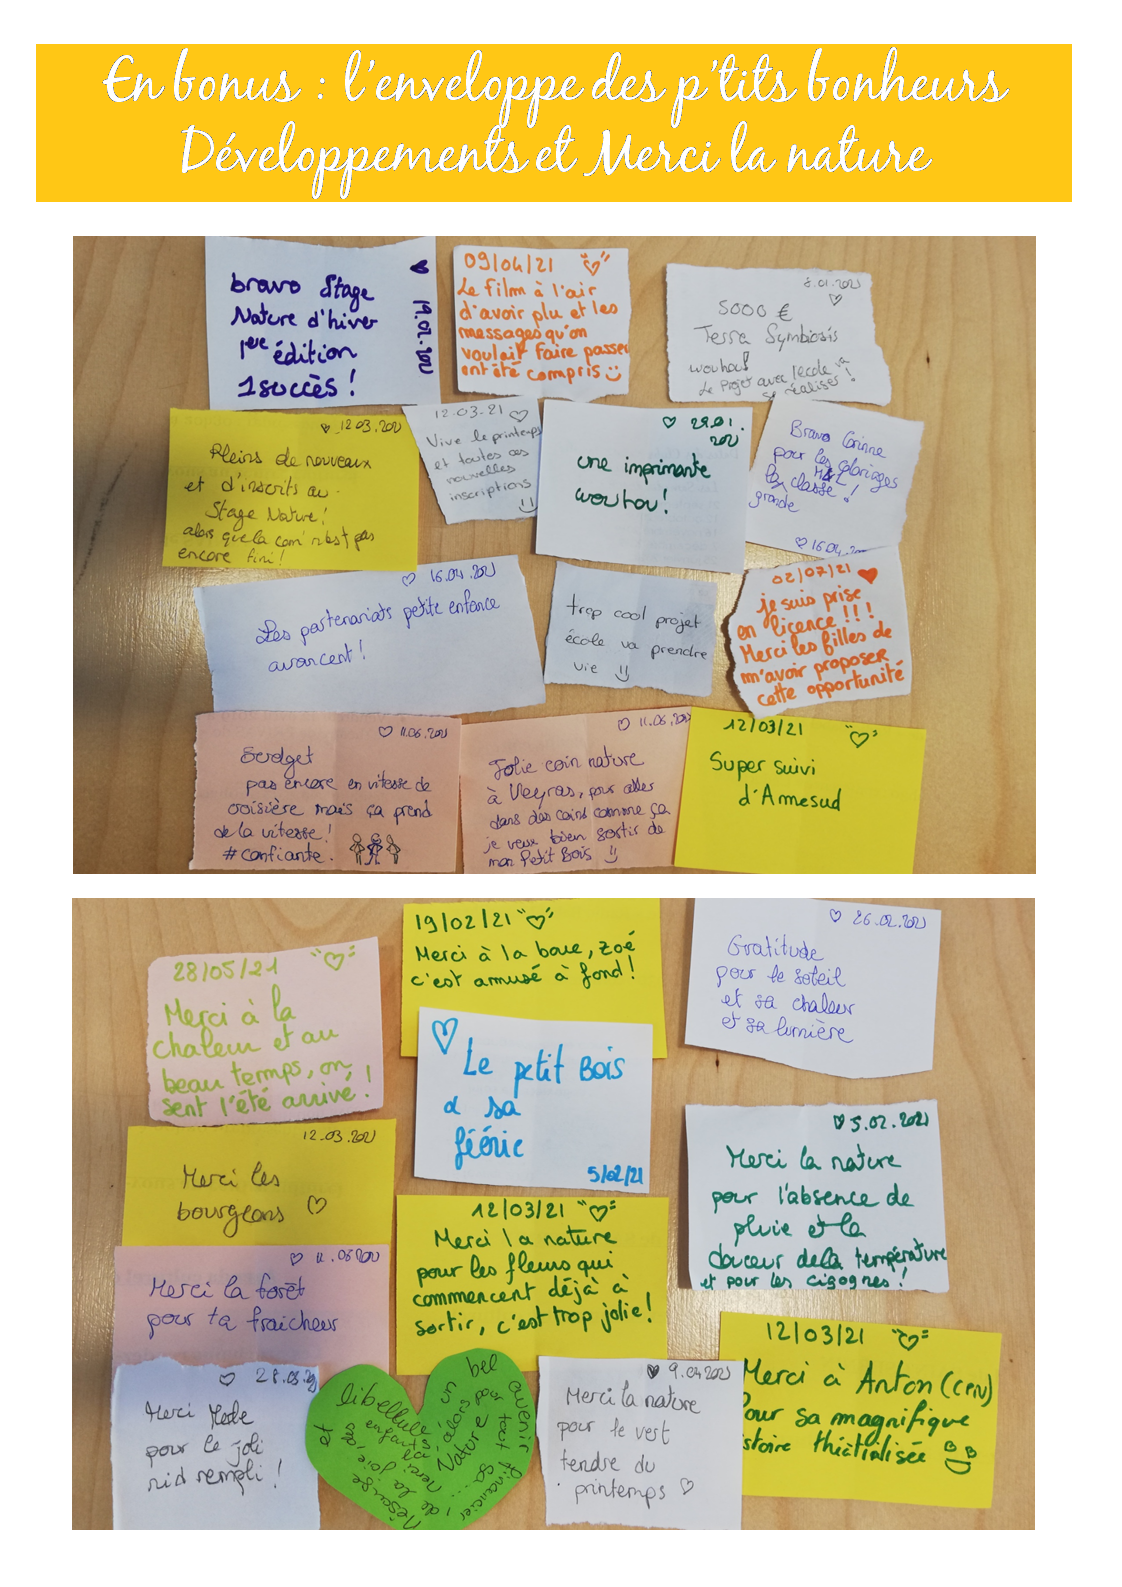 En bonus : l'enveloppe des p'tits bonheurs
Développements et Merci la nature
bravo Stage
Nature d'hiver
1ère édition
1 succès !
19.02.2021
09/04/21
Le film à l'air
d'avoir plu et les
messages qu'on
voulait faire passer
ont été compris
8.01.2021
5000 €
Terra Symbiosis
wouhou!
Le projet avec l'école va
se réaliser !
12.03.2021
Pleins de nouveaux
et d'inscrits au
Stage Nature!
alors que la com' n'est pas
encore fini!
12-03-21
Vive le printemps
et toutes ces
nouvelles
inscriptions
29.01.
2021
une imprimante
wouhou!
Bravo Corinne
pour les coloriages
H&L
la classe !
grande
16.04.2021
16.04.2021
Les partenariats petite enfance
avancent!
trop cool projet
école va prendre
vie
02/07/21
je suis prise
en licence !!!
Merci les filles de
m'avoir proposer
cette opportunité
11.06.2021
Budget
pas encore en vitesse de
croisière mais ça prend
de la vitesse!
#confiante.
11.06.2021
Jolie coin nature
à Veyras, pour aller
dans des coins comme ça
je veux bien sortir de
mon Petit Bois
12/03/21
Super suivi
d'Amesud
28/05/21
Merci à la
chaleur et au
beau temps, on
sent l'été arrivé !
19/02/21
Merci à la boue, Zoé
c'est amusé à fond!
26.02.2021
Gratitude
pour le soleil
et sa chaleur
et sa lumière
Le petit Bois
et sa
féérie
5/02/21
5.02.2021
Merci la nature
pour l'absence de
pluie et la
douceur de la température
et pour les cigognes !
12.03.2021
Merci les
bourgeons
12/03/21
Merci la nature
pour les fleurs qui
commencent déjà à
sortir, c'est trop jolie!
11.06.2021
Merci la forêt
pour ta fraicheur
12/03/21
Merci à Anton (CPN)
pour sa magnifique
histoire théâtralisée
Merci
pour le joli
nid rempli !
libellule
un bel avenir financier,
de la joie
enfants
Nature
Mésange
et
9.04.2021
Merci la nature
pour le vert
tendre du
printemps